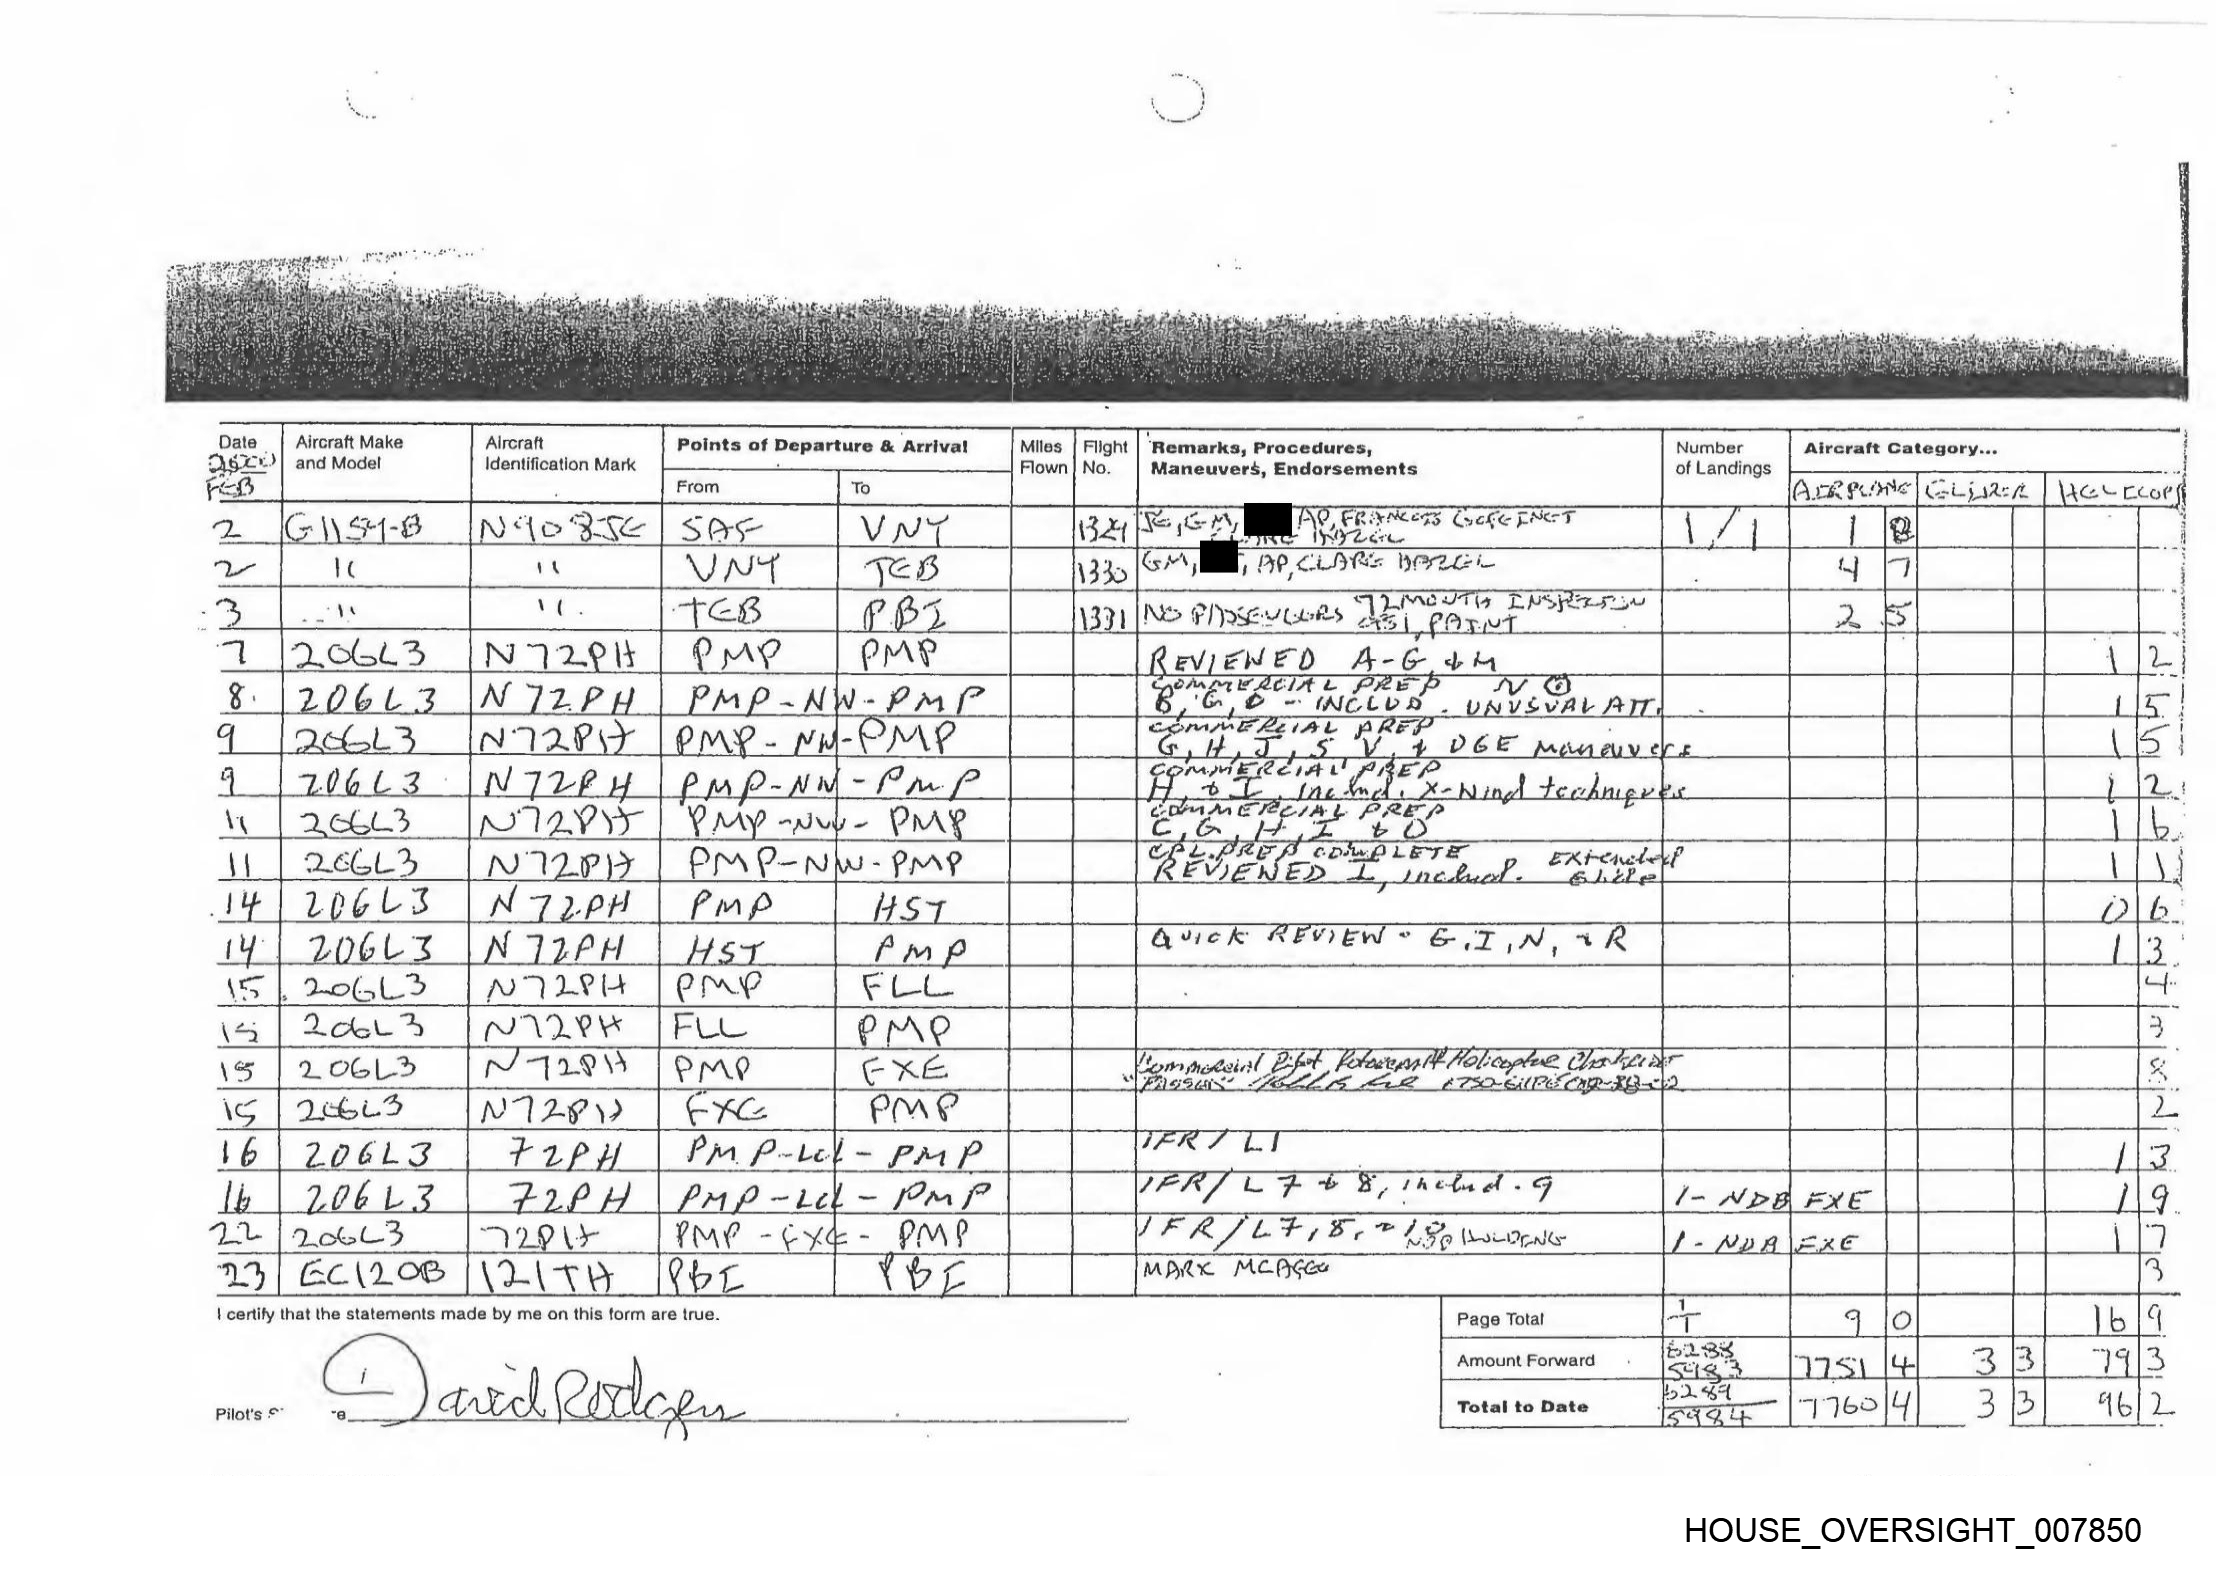 Date Aircraft Make and Model Aircraft Identification Mark Points of Departure & Arrival Miles Flown Flight No. Remarks, Procedures, Maneuvers, Endorsements Number of Landings Aircraft Category...
FEB From To AIRPLANE GLIDER HELICOP
2 G1159-B N908JE SAF VNY JE, GM, AP, 1/1 1 8
2 " " VNY TEB 1330 GM, AP, CLARE HAZEL 4 7
3 " " TEB PBI 1331 NO PASSENGERS 72 MONTH INSPECTION PAINT 2 5
7 206L3 N72PH PMP PMP REVIEWED A-G, & M 1 2
8 206L3 N72PH PMP-NW-PMP COMMERCIAL PREP B, G, O - INCLUD. UNUSUAL ATT. 1 5
9 206L3 N72PH PMP-NW-PMP COMMERCIAL PREP G, H, J, S, V, & OGE maneuvers 1 5
9 206L3 N72PH PMP-NW-PMP COMMERCIAL PREP H, & I, includ. X-Wind techniques 1 2
11 206L3 N72PH PMP-NW-PMP COMMERCIAL PREP C, G, H, I & O 1 6
11 206L3 N72PH PMP-NW-PMP CPL. PREP COMPLETE REVIEWED I, includ. Extended Glide 1 1
14 206L3 N72PH PMP HST 0 6
14 206L3 N72PH HST PMP QUICK REVIEW - G, I, N, & R 1 3
15 206L3 N72PH PMP FLL 4
15 206L3 N72PH FLL PMP 3
15 206L3 N72PH PMP FXE Commercial Pilot Rotorcraft Helicopter Checkride "PASSED" 8
15 206L3 N72PH FXE PMP 2
16 206L3 72PH PMP-Lcl-PMP IFR/L1 1 3
16 206L3 72PH PMP-Lcl-PMP IFR/L7 & 8, includ. 9 1-NDB FXE 1 9
22 206L3 72PH PMP-FXE-PMP IFR/L7, 8, HOLDING 1-NDB FXE 1 7
23 EC120B 121TH PBI PBI MARK 3
I certify that the statements made by me on this form are true.
Page Total 1/1 9 0 16 9
Amount Forward 6288 5983 7751 4 3 3 79 3
Total to Date 6289 5984 7760 4 3 3 96 2
Pilot's S e David Rodgers
HOUSE_OVERSIGHT_007850